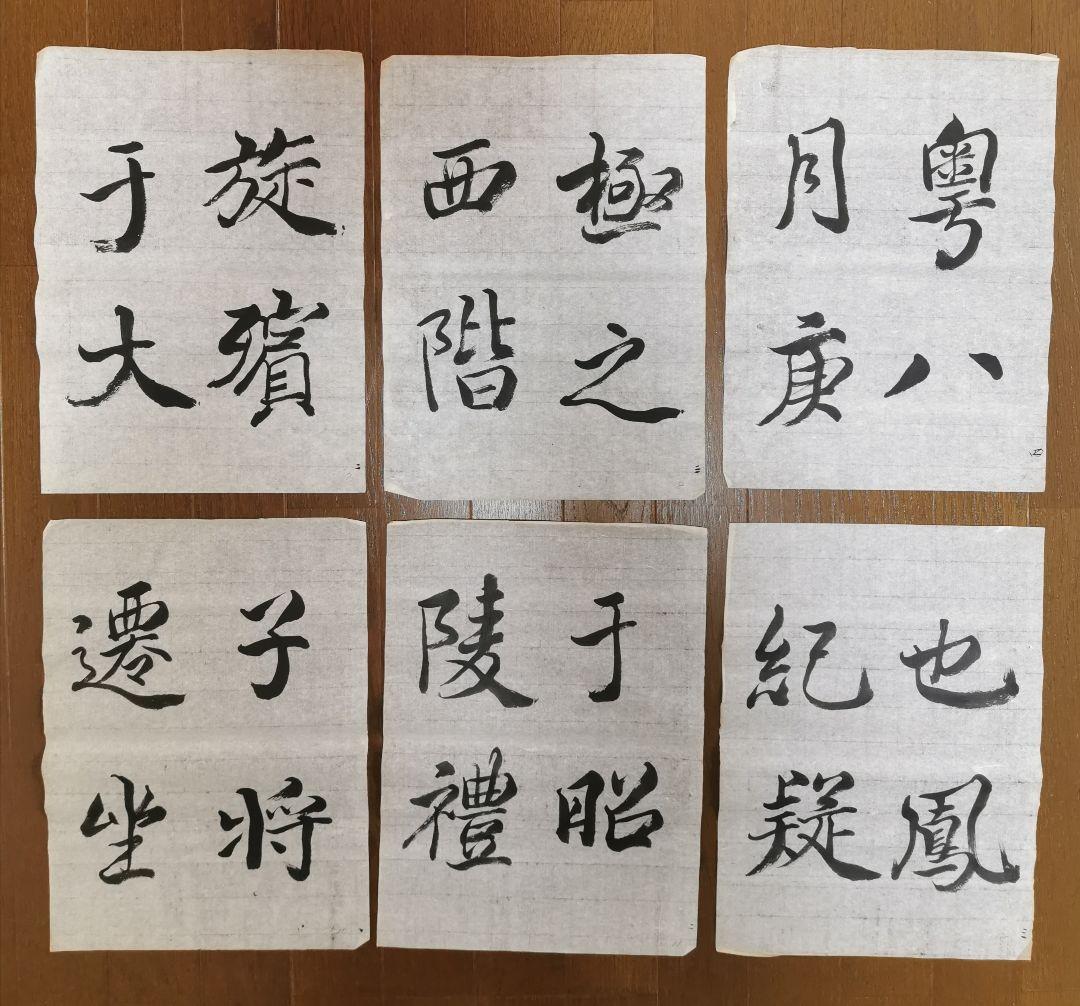 旋殯
于大
二
極之
西階
三
粵八
月庚
四
子将
遷坐
于昭
陵禮
也鳳
紀疑
三